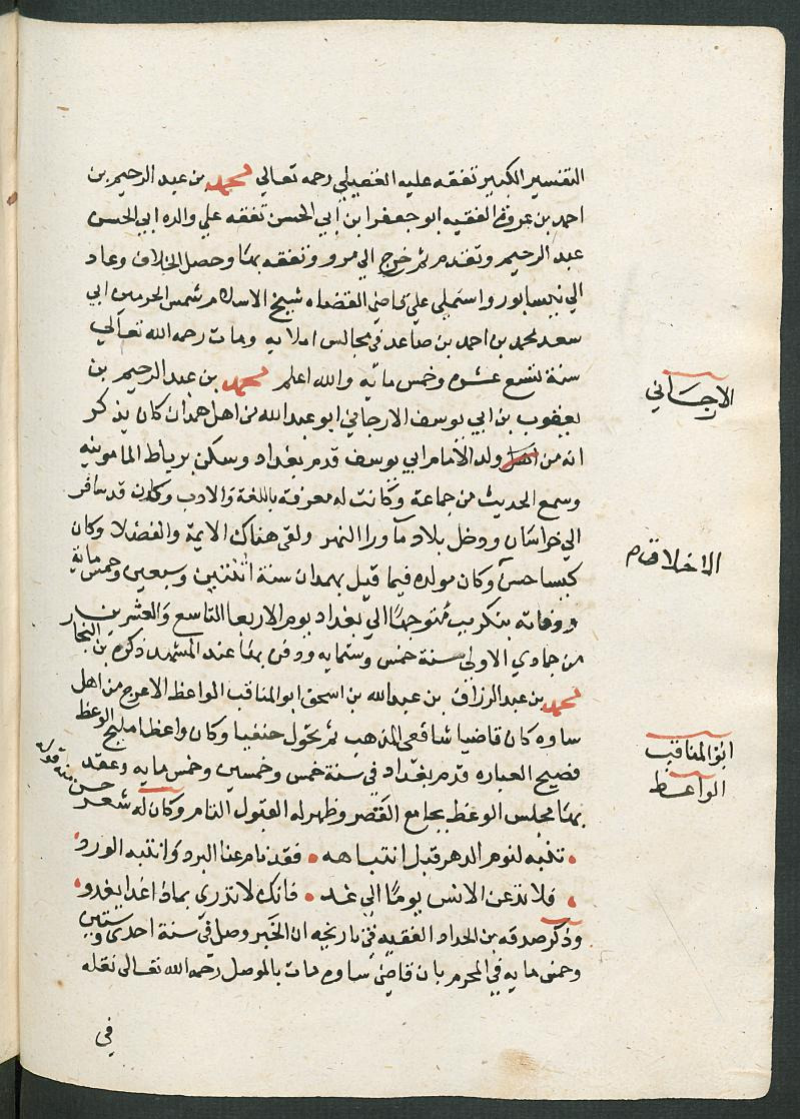 التفسير الكبير تفقه عليه الفضيلي رحمه تعالي محمد بن عبد الرحيم بن
احمد بن عروة الفقيه ابو جعفر ابن ابي الحسن تفقه علي والده ابي الحسن
عبد الرحيم وتقدم ثم خرج الي مرو وتفقه بها وحصل الخلاف وعاد
الي نيسابور واستملي علي قاضي القضاه شيخ الاسلام شمس الحرمين ابي
سعد محمد بن احمد بن صاعد في مجالس املايه ومات رحمه الله تعالي
سنة تسع عشره وخمس مايه والله اعلم محمد بن عبد الرحيم بن
يعقوب بن ابي يوسف الارجاني ابو عبد الله من اهل همدان كان يذكر
انه من ولد الامام ابي يوسف قدم بغداد وسكن برباط المامونيه
وسمع الحديث من جماعة وكانت له معرفة باللغة والادب وكان قد سافر
الي خراسان ودخل بلاد ما ورا النهر ولقي هناك الايمة والفضلا وكان
كيسا حسن وكان مولده فيما قيل بهمدان سنة اثنتين وسبعين وخمس مايه
ووفاته بتكريت متوجها الي بغداد يوم الاربعا التاسع والعشرين
من جمادي الاولي سنة خمس وستمايه ودفن بها عند المشهد ذكره بن النجار
محمد بن عبد الرزاق بن عبد الله بن اسحق ابو المناقب الواعظ الاعرج من اهل
ساوه كان قاضيا شافعي المذهب ثم تحول حنفيا وكان واعظا مليح الوعظ
فصيح العباره قدم بغداد في سنة خمس وخمسين وخمس مايه وعقد
بها مجلس الوعظ بجامع القصر وظهر له القبول التام وكان له شعر حسن منه قوله
تنبه لنوم الدهر قبل انتباهه فقد نام عنا البرد وانتبه الورد
فلا تدعن الانس يوما الي غد فانك لا تدري بماذا غدا يغدو
وذكر صدقه بن الحداد الفقيه في تاريخه ان الخبر وصل في سنة احدي وستين
وخمس مايه في المحرم بان قاضي ساوه مات بالموصل رحمه الله تعالي نقله
في
الارجاني
ابو المناقب
الواعظ